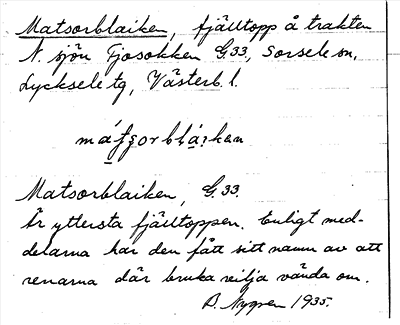 Matsorblaiken, fjälltopp å trakten
N. sjön Fjosokken G.33, Sorsele sn,
Lycksele tg, Västerb. l.
Matsorblaiken, G.33.
Är yttersta fjälltoppen. Enligt med-
delarna har den fått sitt namn av att
renarna där bruka vilja vända om.
B. Nygren 1935.